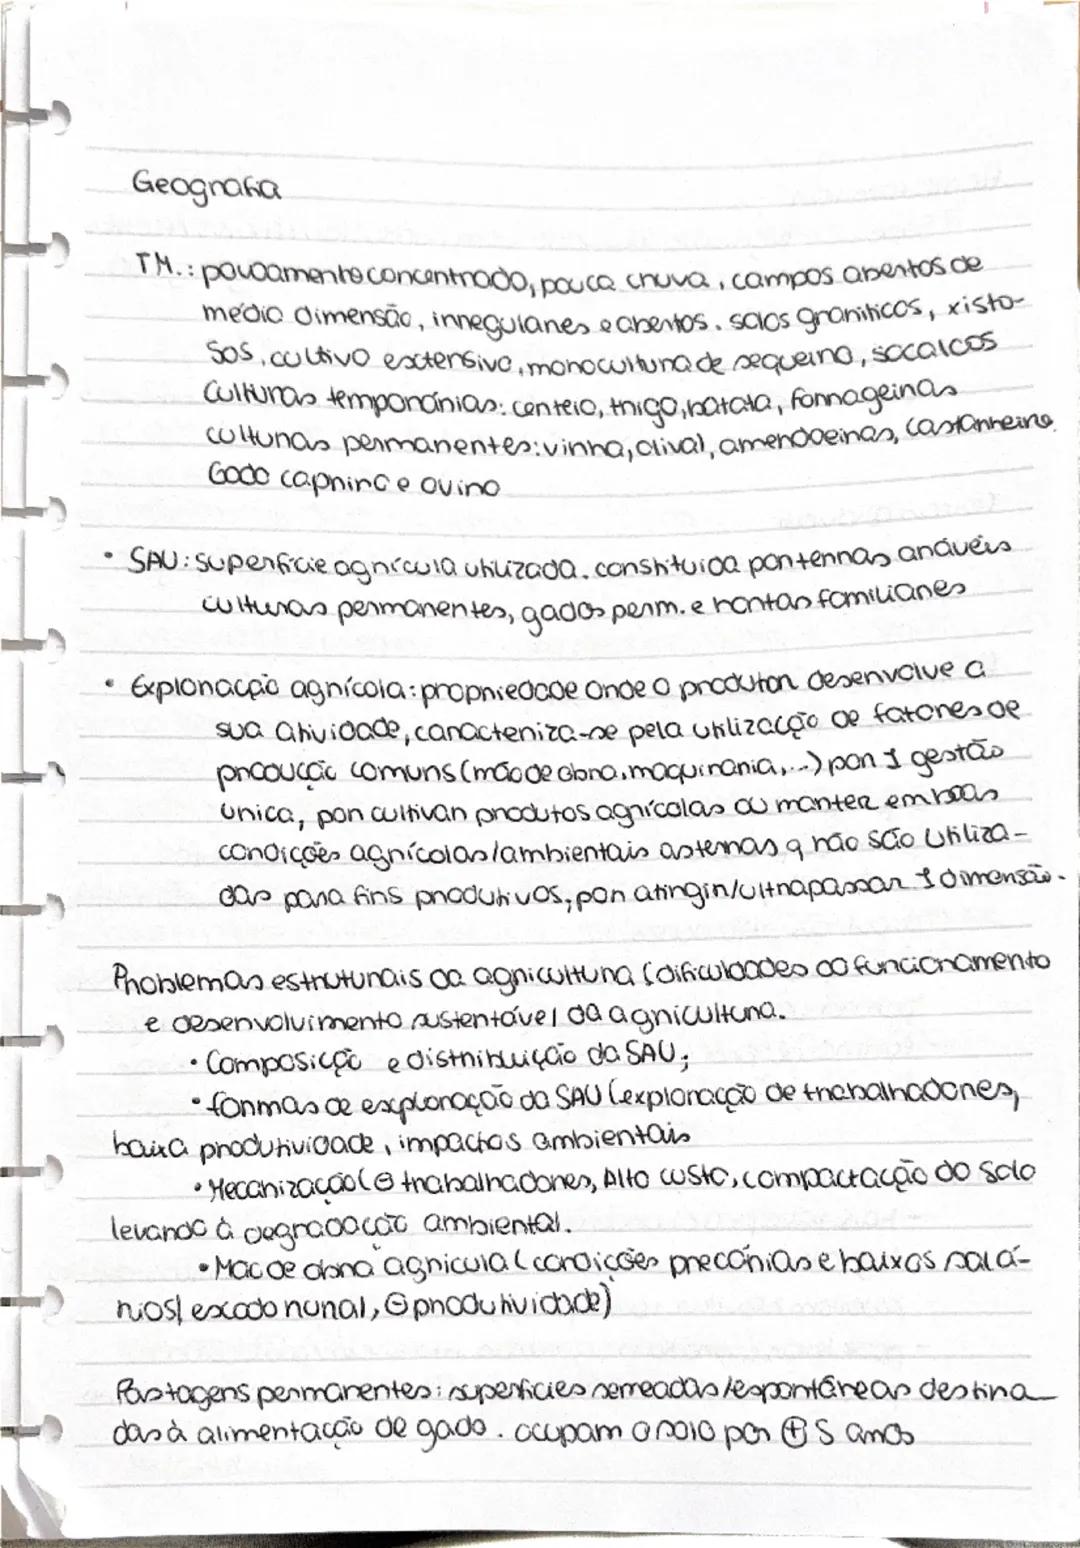 Geografia
TM.: povoamento concentrado, pouca chuva, campos abertos de
média dimensão, irregulares e abertos. solos graníticos, xisto-
sos, cultivo extensivo, monocultura de sequeiro, socalcos
culturas temporárias: centeio, trigo, batata, forrageiras
culturas permanentes: vinha, olival, amendoeiras, castanheiro
Gado caprino e ovino
• SAU: superfície agrícula utilizada. constituida por terras aráveis
culturas permanentes, gados perm. e hortas familiares
• Exploração agrícola: propriedade onde o produtor desenvolve a
sua atividade, caracteriza-se pela utilização de fatores de
produção comuns (mão de obra, maquinaria,...) por 1 gestão
única, por cultivar produtos agrícolas ou manter em boas
condições agrícolas/ambientais as terras q não são utiliza-
das para fins produtivos, por atingir/ultrapassar 1 dimensão.
Problemas estruturais da agricultura (dificuldades do funcionamento
e desenvolvimento sustentável da agricultura.
• Composição e distribuição da SAU;
• formas de exploração da SAU (exploração de trabalhadores,
baixa produtividade, impactos ambientais
• Mecanização (⊖ trabalhadores, Alto custo, compactação do solo
levando à degradação ambiental.
• Mao de obra agricula (condições precárias e baixos salá-
rios/ escodo rural, ⊖ produtividade)
Pastagens permanentes: superficies semeadas/espontâneas destina
das à alimentação de gado. ocupam o solo por ⊕ 5 anos